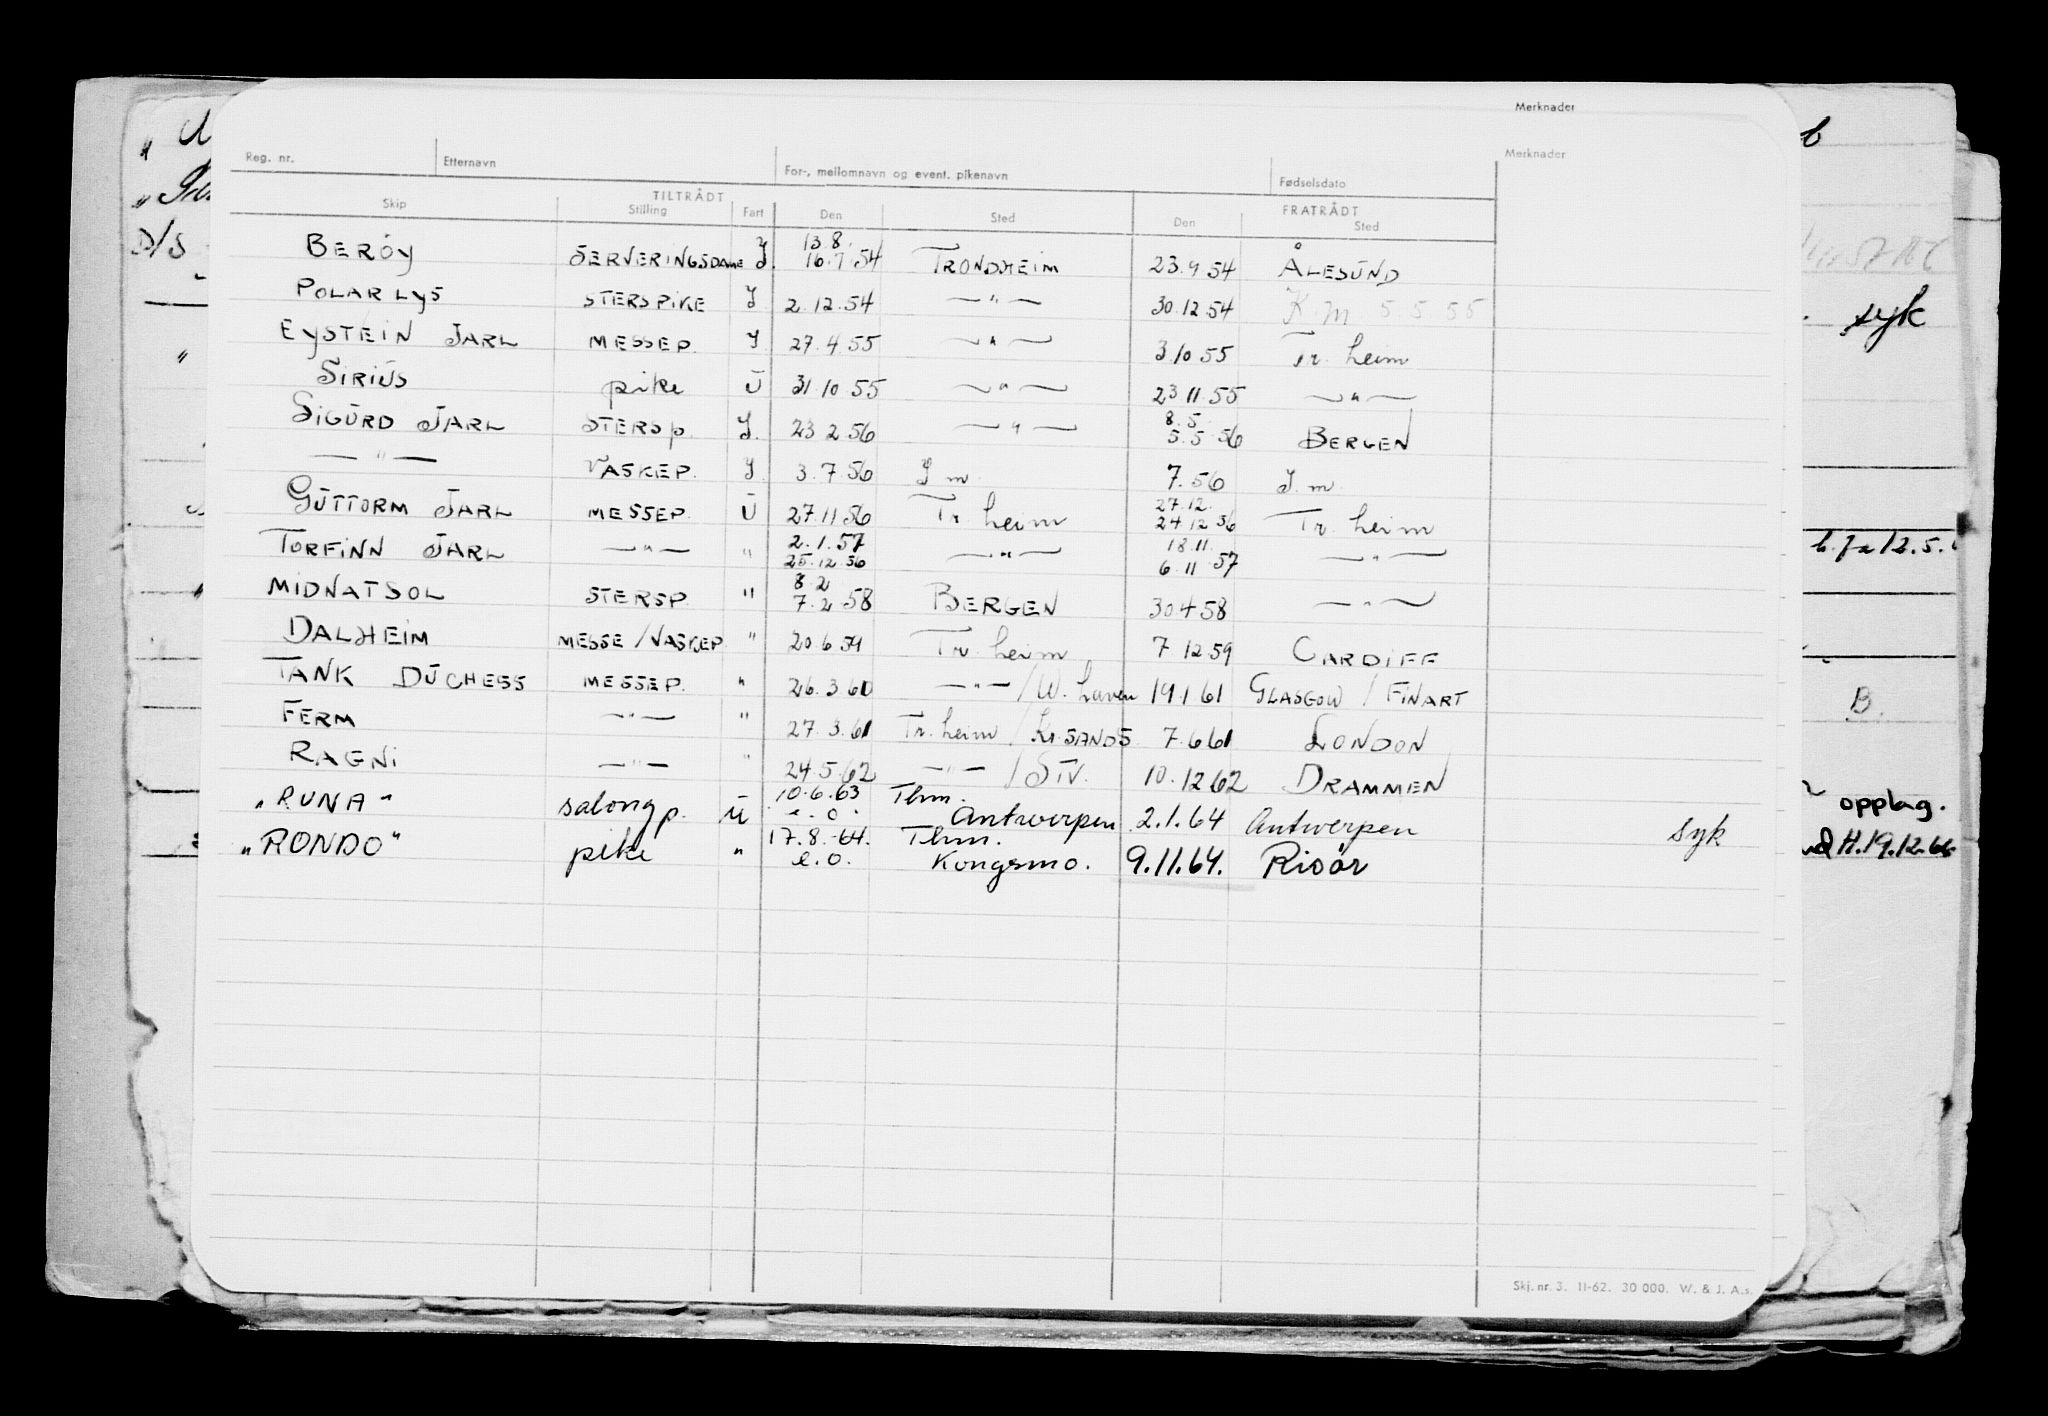 Merknader
Reg. nr. Etternavn For-, mellomnavn og event. pikenavn Fødselsdato Merknader
TILTRÅDT FRATRÅDT
Skip Stilling Fart Den Sted Den Sted
13.8.
BERÖY SERVERINGSDAME J. 16.7.54 TRONDHEIM 23.9.54 ÅLESUND
POLARLYS STERSPIKE J 2.12.54 —"— 30.12.54 K.m. 5.5.55
EYSTEIN JARL MESSEP. J 27.4.55 —"— 3.10.55 Tr. heim
SIRIUS pike U 31.10.55 —"— 23.11.55 —"—
8.5.
SIGURD JARL STERSP. J. 23.2.56 —"— 5.5.56 BERGEN
—"— VASKEP. J 3.7.56 J m. 7.56 J. m.
27.12.
GUTTORM JARL MESSEP. U 27.11.56 Tr. heim 24.12.56 Tr. heim
2.1.57 18.11.
TORFINN JARL —"— " 25.12.56 —"— 6.11.57 —"—
8.2
MIDNATSOL STERSP. " 7.2.58 BERGEN 30.4.58 —"—
DALHEIM MESSE/VASKEP. " 20.6.59 Tr. heim 7.12.59 CARDIFF
TANK DUCHESS MESSEP. " 26.3.60 —"—/W. haven 19.1.61 GLASGOW / FINART
FERM —"— " 27.3.61 Tr. heim / Kr.SANDS 7.6.61 LONDON
RAGNI —"— " 24.5.62 —"— / STV. 10.12.62 DRAMMEN
10.6.63 Thm.
"RUNA" salongp. U e.o. Antwerpen 2.1.64 Antwerpen syk
17.8.64. Thm.
"RONDO" pike " e.o. Kongsmo. 9.11.64. Risör
Skj. nr. 3. 11-62. 30 000. W. & J. A.s.
D/S
syk
B.
opplag.
H.19.12.66